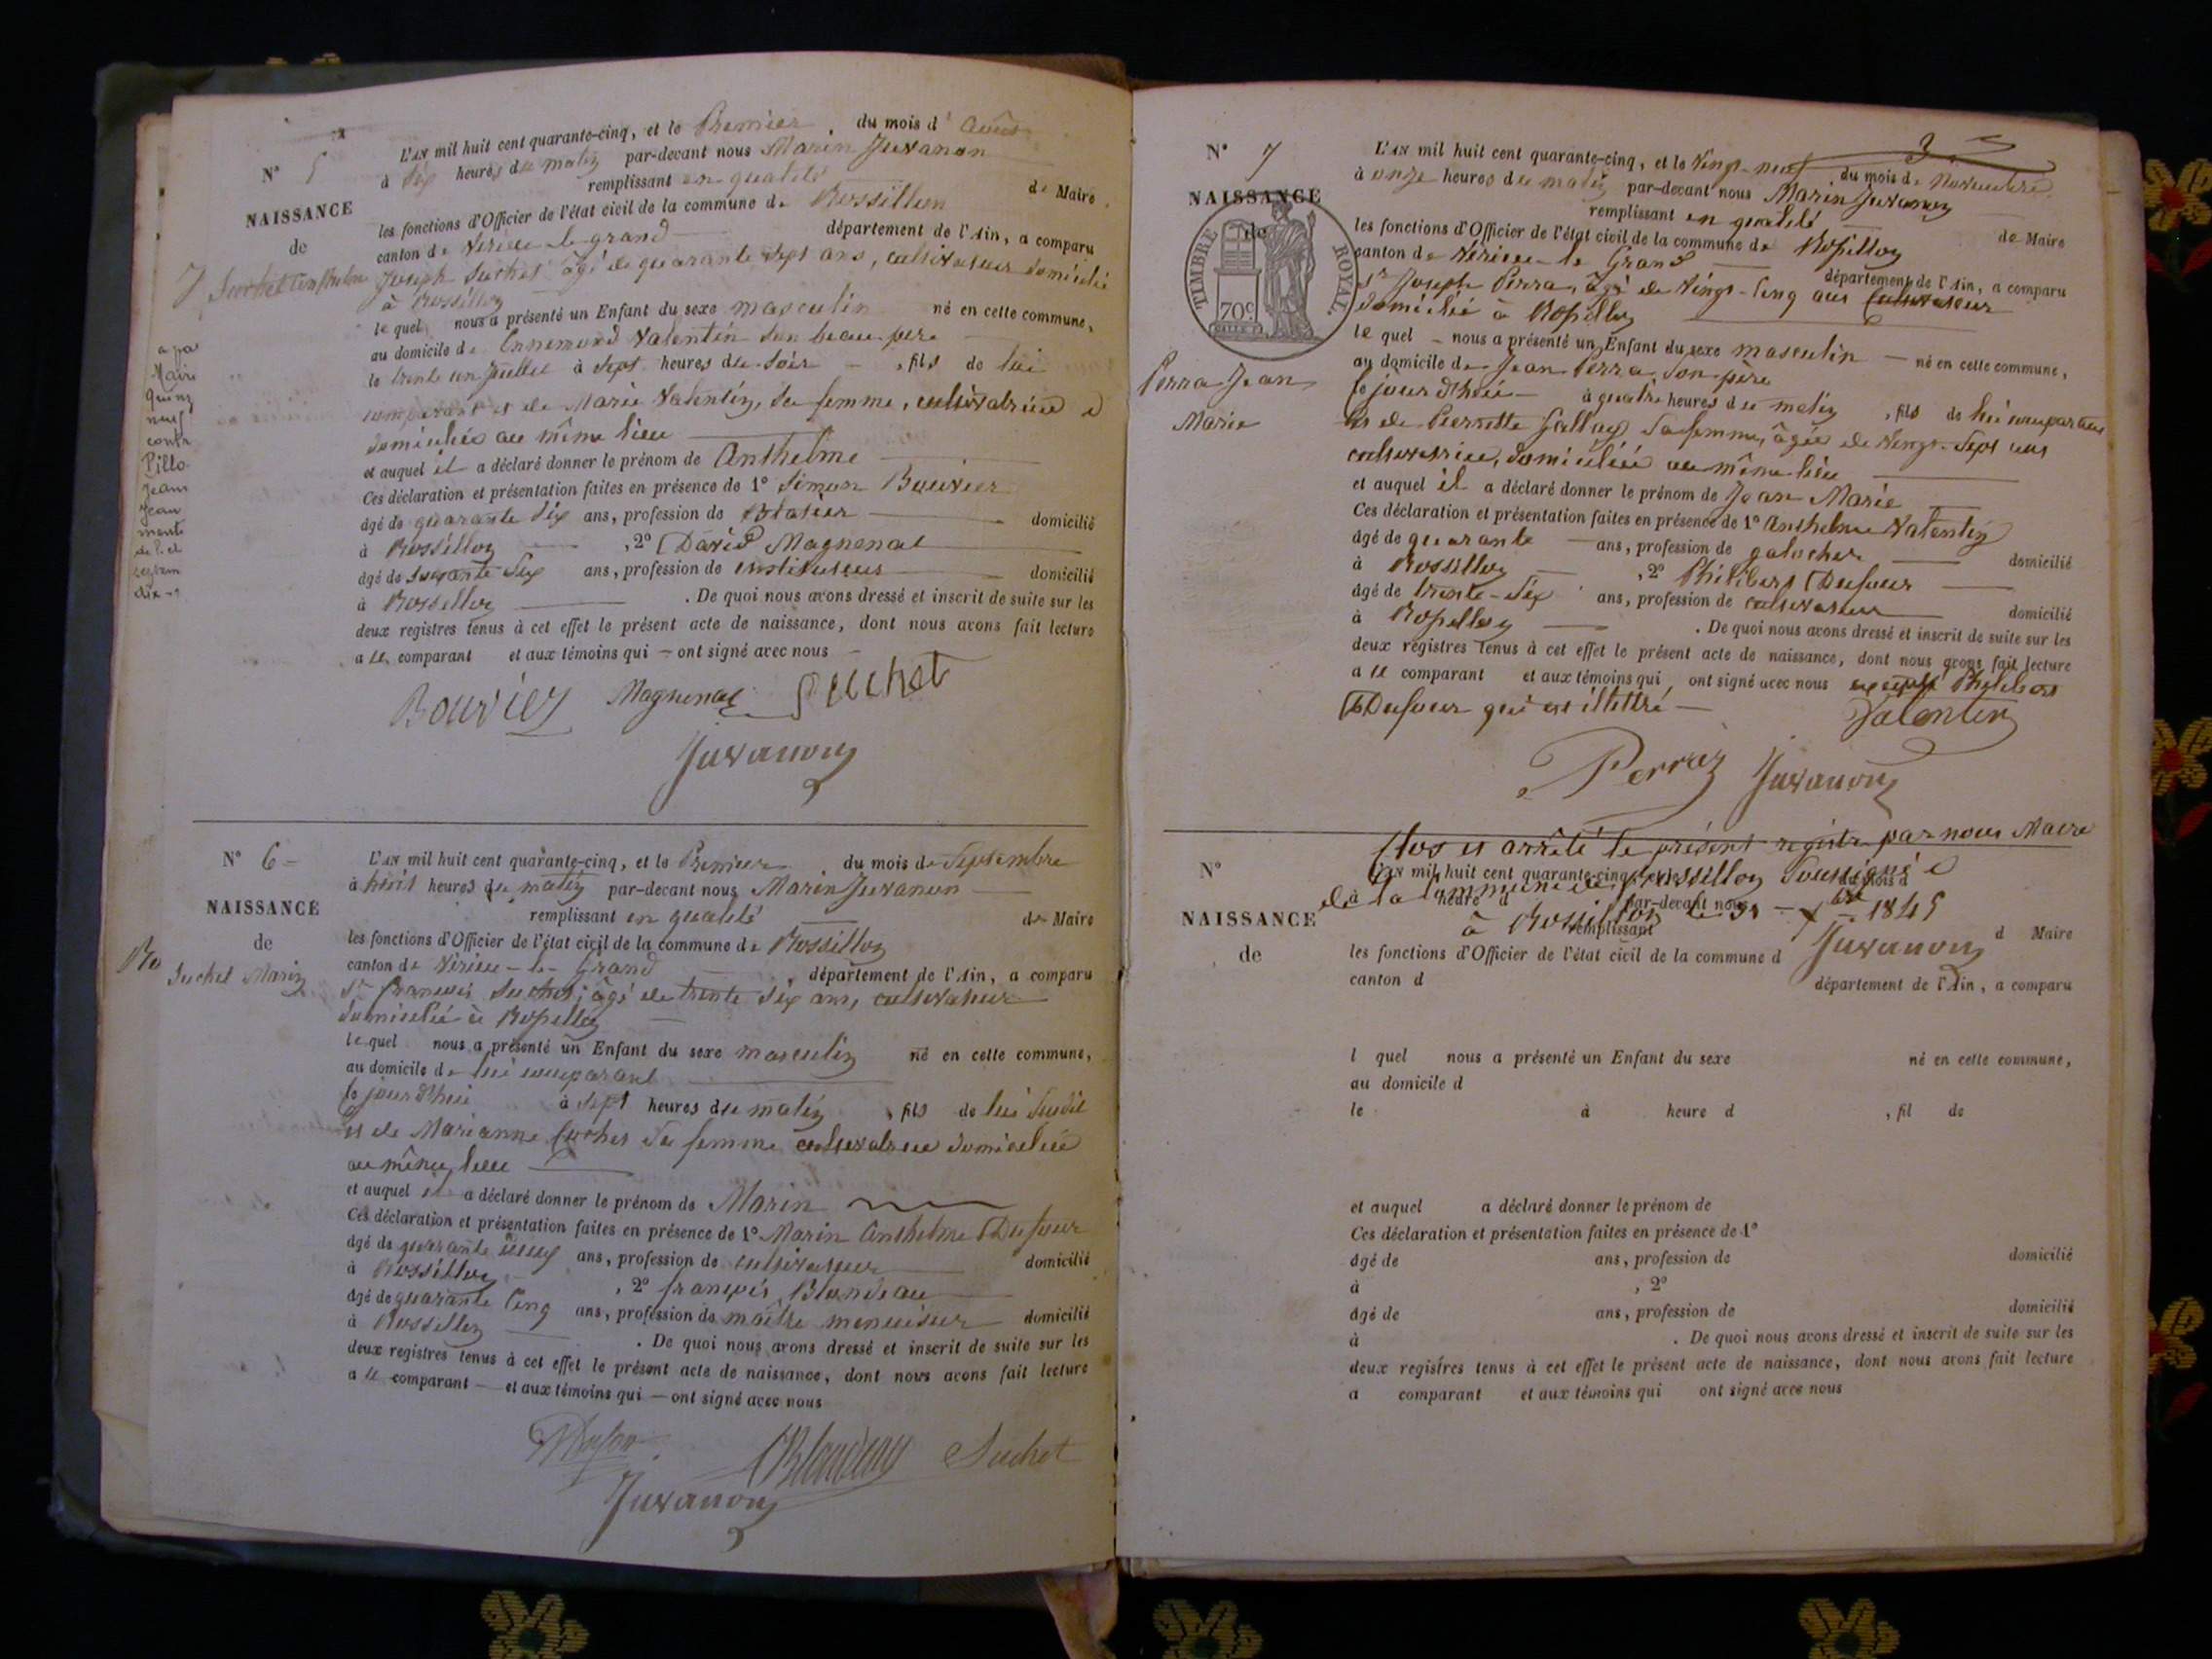 N° 5
NAISSANCE
de
Suchet Anthelme
L'AN mil huit cent quarante-cinq, et le Premier du mois d'Août
à Six heures du matin par-devant nous Marin Juvanon
remplissant en qualité de Maire
les fonctions d'Officier de l'état civil de la commune de Rossillon
canton de Virieu le grand département de l'Ain, a comparu
Joseph Suchet âgé de quarante Sept ans, cultivateur domicilié
à Rossillon
le quel nous a présenté un Enfant du sexe masculin né en cette commune,
au domicile de Ennemond Valentin son beau père
le trente un Juillet à Sept heures du Soir, fils de lui
comparant et de Marie Valentin, Sa femme, cultivatrice
domiciliés au même lieu
et auquel il a déclaré donner le prénom de Anthelme
Ces déclaration et présentation faites en présence de 1° Simon Bouvier
âgé de quarante Six ans, profession de domicilié
à Rossillon, 2° David Magnenat
âgé de Soixante Six ans, profession de instituteur domicilié
à Rossillon. De quoi nous avons dressé et inscrit de suite sur les
deux registres tenus à cet effet le présent acte de naissance, dont nous avons fait lecture
a le comparant et aux témoins qui ont signé avec nous
Bouvier Magnenat Suchet
Juvanon
a par
Maire
quinz
neuf
contr
Pillo
Jean
Jean
dix-
N° 6
NAISSANCE
de
Suchet Marin
L'AN mil huit cent quarante-cinq, et le Premier du mois de Septembre
à huit heures du matin par-devant nous Marin Juvanon
remplissant en qualité de Maire
les fonctions d'Officier de l'état civil de la commune de Rossillon
canton de Virieu-le-Grand, département de l'Ain, a comparu
Sr François Suchet, âgé de trente Six ans, cultivateur
domicilié à Rossillon
le quel nous a présenté un Enfant du sexe masculin né en cette commune,
au domicile de lui comparant
le jourd'hui à Sept heures du matin, fils de lui Susdit
et de Marianne Sa femme cultivatrice domiciliée
au même lieu
et auquel il a déclaré donner le prénom de Marin
Ces déclaration et présentation faites en présence de 1° Marin Anthelme Dufour
âgé de quarante ans, profession de cultivateur domicilié
à Rossillon, 2° françois Blondeau
âgé de quarante Cinq ans, profession de maître menuisier domicilié
à Rossillon. De quoi nous avons dressé et inscrit de suite sur les
deux registres tenus à cet effet le présent acte de naissance, dont nous avons fait lecture
a le comparant et aux témoins qui ont signé avec nous
Dufour Blondeau Suchet
Juvanon
3
N° 7
NAISSANCE
de
TIMBRE ROYAL.
70c
Perra Jean
Marie
L'AN mil huit cent quarante-cinq, et le Vingt-neuf du mois de Novembre
à onze heures du matin par-devant nous Marin Juvanon
remplissant en qualité de Maire
les fonctions d'Officier de l'état civil de la commune de Rossillon
canton de Virieu-le Grand département de l'Ain, a comparu
Sr Joseph Perra, âgé de Vingt-Cinq ans Cultivateur
domicilié à Rossillon
le quel nous a présenté un Enfant du sexe masculin né en cette commune,
au domicile de Jean Perra, Son père
le jourd'hui à quatre heures du matin, fils de lui comparant
et de Pierrette Sa femme, âgée de Vingt-Sept ans
cultivatrice, domiciliée au même lieu
et auquel il a déclaré donner le prénom de Jean Marie
Ces déclaration et présentation faites en présence de 1° Anthelme Valentin
âgé de quarante ans, profession de galocher domicilié
à Rossillon, 2° Philibert Dufour
âgé de trente-Six ans, profession de cultivateur domicilié
à Rossillon. De quoi nous avons dressé et inscrit de suite sur les
deux registres tenus à cet effet le présent acte de naissance, dont nous avons fait lecture
a le comparant et aux témoins qui ont signé avec nous excepté Philibert
Dufour qui est illettré
Valentin
Perraz Juvanon
Clos et arrêté le présent registre par nous Maire
de la Commune de Rossillon Soussigné
à Rossillon le 31 Xbre 1845
Juvanon
N°
NAISSANCE
de
L'AN mil huit cent quarante-cinq, et le du mois d
à heure d par-devant nous
remplissant d Maire
les fonctions d'Officier de l'état civil de la commune d
canton d département de l'Ain, a comparu
l quel nous a présenté un Enfant du sexe né en cette commune,
au domicile d
le à heure d, fil de
et auquel a déclaré donner le prénom de
Ces déclaration et présentation faites en présence de 1°
âgé de ans, profession de domicilié
à, 2°
âgé de ans, profession de domicilié
à. De quoi nous avons dressé et inscrit de suite sur les
deux registres tenus à cet effet le présent acte de naissance, dont nous avons fait lecture
a comparant et aux témoins qui ont signé avec nous